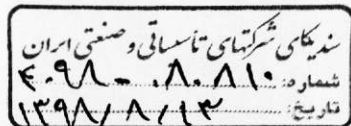 سندیکای شرکتهای تأسیساتی و صنعتی ایران
شماره: ۴۰۹۸ - ۰۸۰۸۱۰
تاریخ: ۱۳۹۸/۸/۱۳